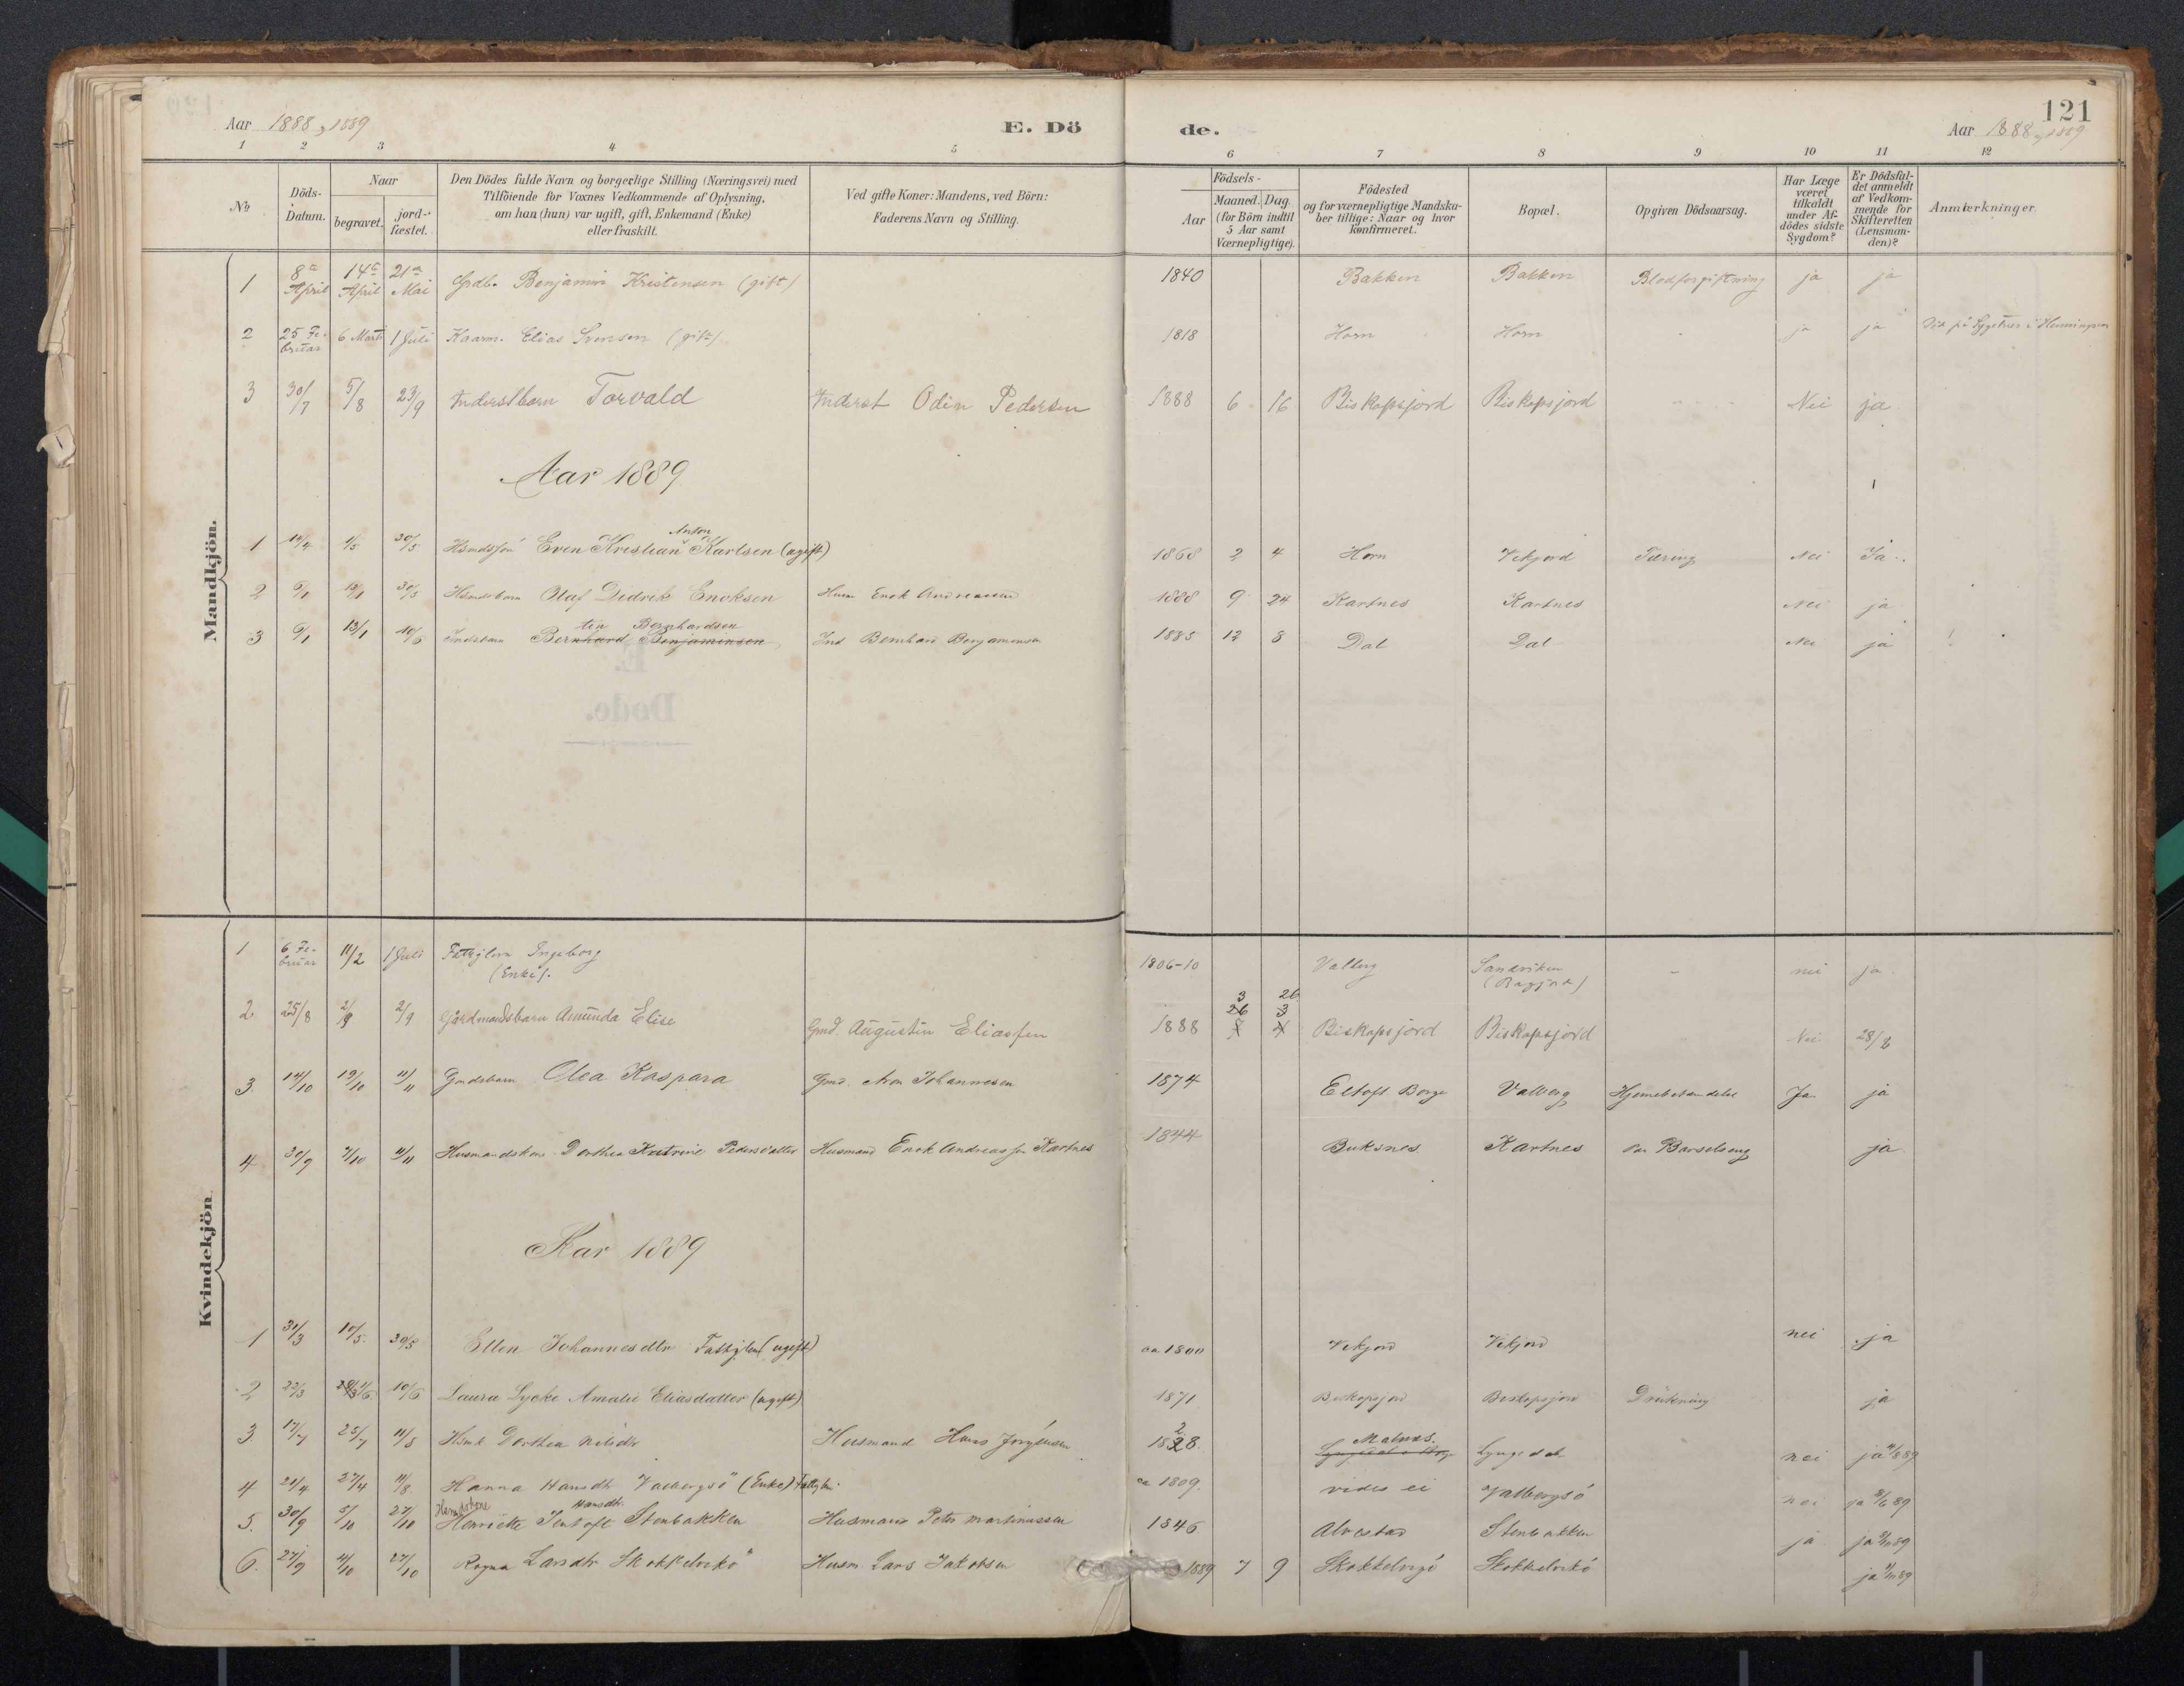 Aar 1888, 1889 E. Dö de. Aar 1888, 1889 121
1 2 3 4 5 6 7 8 9 10 11 12
№ Döds-Datum. Naar begravet. jord-fæstet. Den Dödes fulde Navn og borgerlige Stilling (Næringsvei) med Tilföiende for Voxnes Vedkommende af Oplysning, om han (hun) var ugift, gift, Enkemand (Enke) eller fraskilt. Ved gifte Koner: Mandens, ved Börn: Faderens Navn og Stilling. Födsels- Aar Maaned. Dag. (for Börn indtil 5 Aar samt Værnepligtige). Födested og for værnepligtige Mandska-ber tillige: Naar og hvor Konfirmeret. Bopæl. Opgiven Dödsaarsag. Har Læge været tilkaldt under Af-dödes sidste Sygdom? Er Dödsfal-det anmeldt af Vedkom-mende for Skifteretten (Lensman-den)? Anmærkninger.
Mandkjön.
1 8de April 14de April 21de Mai Grdb. Benjamin Kristensen (gift) 1840 Bakken Bakken Blodforgiftning ja ja
2 25 Fe-bruar 6 Marts 1 Juli Kaarm. Elias Svensen (gift) 1818 Horn Horn - ja ja
3 30/7 5/8 23/9 Inderstbarn Torvald Inderst Odin Pedersen 1888 6 16 Biskopsjord Biskopsjord Nei ja
Aar 1889
1 1/5 30/5 Even Kristian Anton Karlsen (ugift) 1868 2 4 Horn Vikjord Tæring Nei Ja
2 6/1 30/5 Husmdsbarn Olaf Didrik Enoksen Husm Enok Andreassen 1888 9 24 Kartnes Kartnes Nei ja
3 6/1 13/1 10/6 Indsbarn Bernhard Benjaminsen ten Bernhardsen Ind Bernhard Benjaminsen 1885 12 8 Dal Dal Nei ja
E.
Døde.
Kvindekjön.
1 6 Fe-bruar 11/2 1 Juli Fattiglem Ingeborg (Enke). 1806-10 Valberg Sandviken - nei ja
2 25/8 2/9 2/9 Gårdmandsbarn Amunda Elise Gmd. Augustin Eliassen 1888 3 26 26 3 Biskopsjord Biskopsjord Nei 28/8
3. 14/10 19/10 11/11 Gmdsbarn Olea Kaspara Gmd. Aron Johannesen 1874 Eltoft Borge Valberg Ja ja
4 30/9 7/10 11/11 Husmandskone Dorthea Katrine Pedersdatter Husmand Enok Andreassen Kartnes 1844 Buksnes Kartnes Barselseng ja
Aar 1889
1 31/3 10/5. 30/5 Ellen Johannesdtr Fattiglem (ugift) ca 1800 Vikjord Vikjord nei ja
2 22/3 10/6 Laura Lycke Amalie Eliasdatter (ugift) 1871 Biskopsjord Biskopsjord Drukning ja
3. 17/7 25/7 11/8 Dorthea Nilsdtr Husmand Hans Jørgensen 1828. Malnes. Lyngedal nei ja
4 21/4 27/4 11/8 Hanna Hansdtr Valbergsö (Enke) Fattiglem. ca 1809. vides ei Valbergsö nei ja
5. 30/9 5/10 27/10 Husmdskone Henriette Jentoft Hansdtr. Stenbakken Husmand Peter Martinussen 1846 Alvestad Stenbakken ja ja
6. 27/9 4/10 27/10 Ragna Larsdtr Skokkelvikö Husm. Lars Jakobsen 1889 7 9 Skokkelvigö Skokkelvikö ja